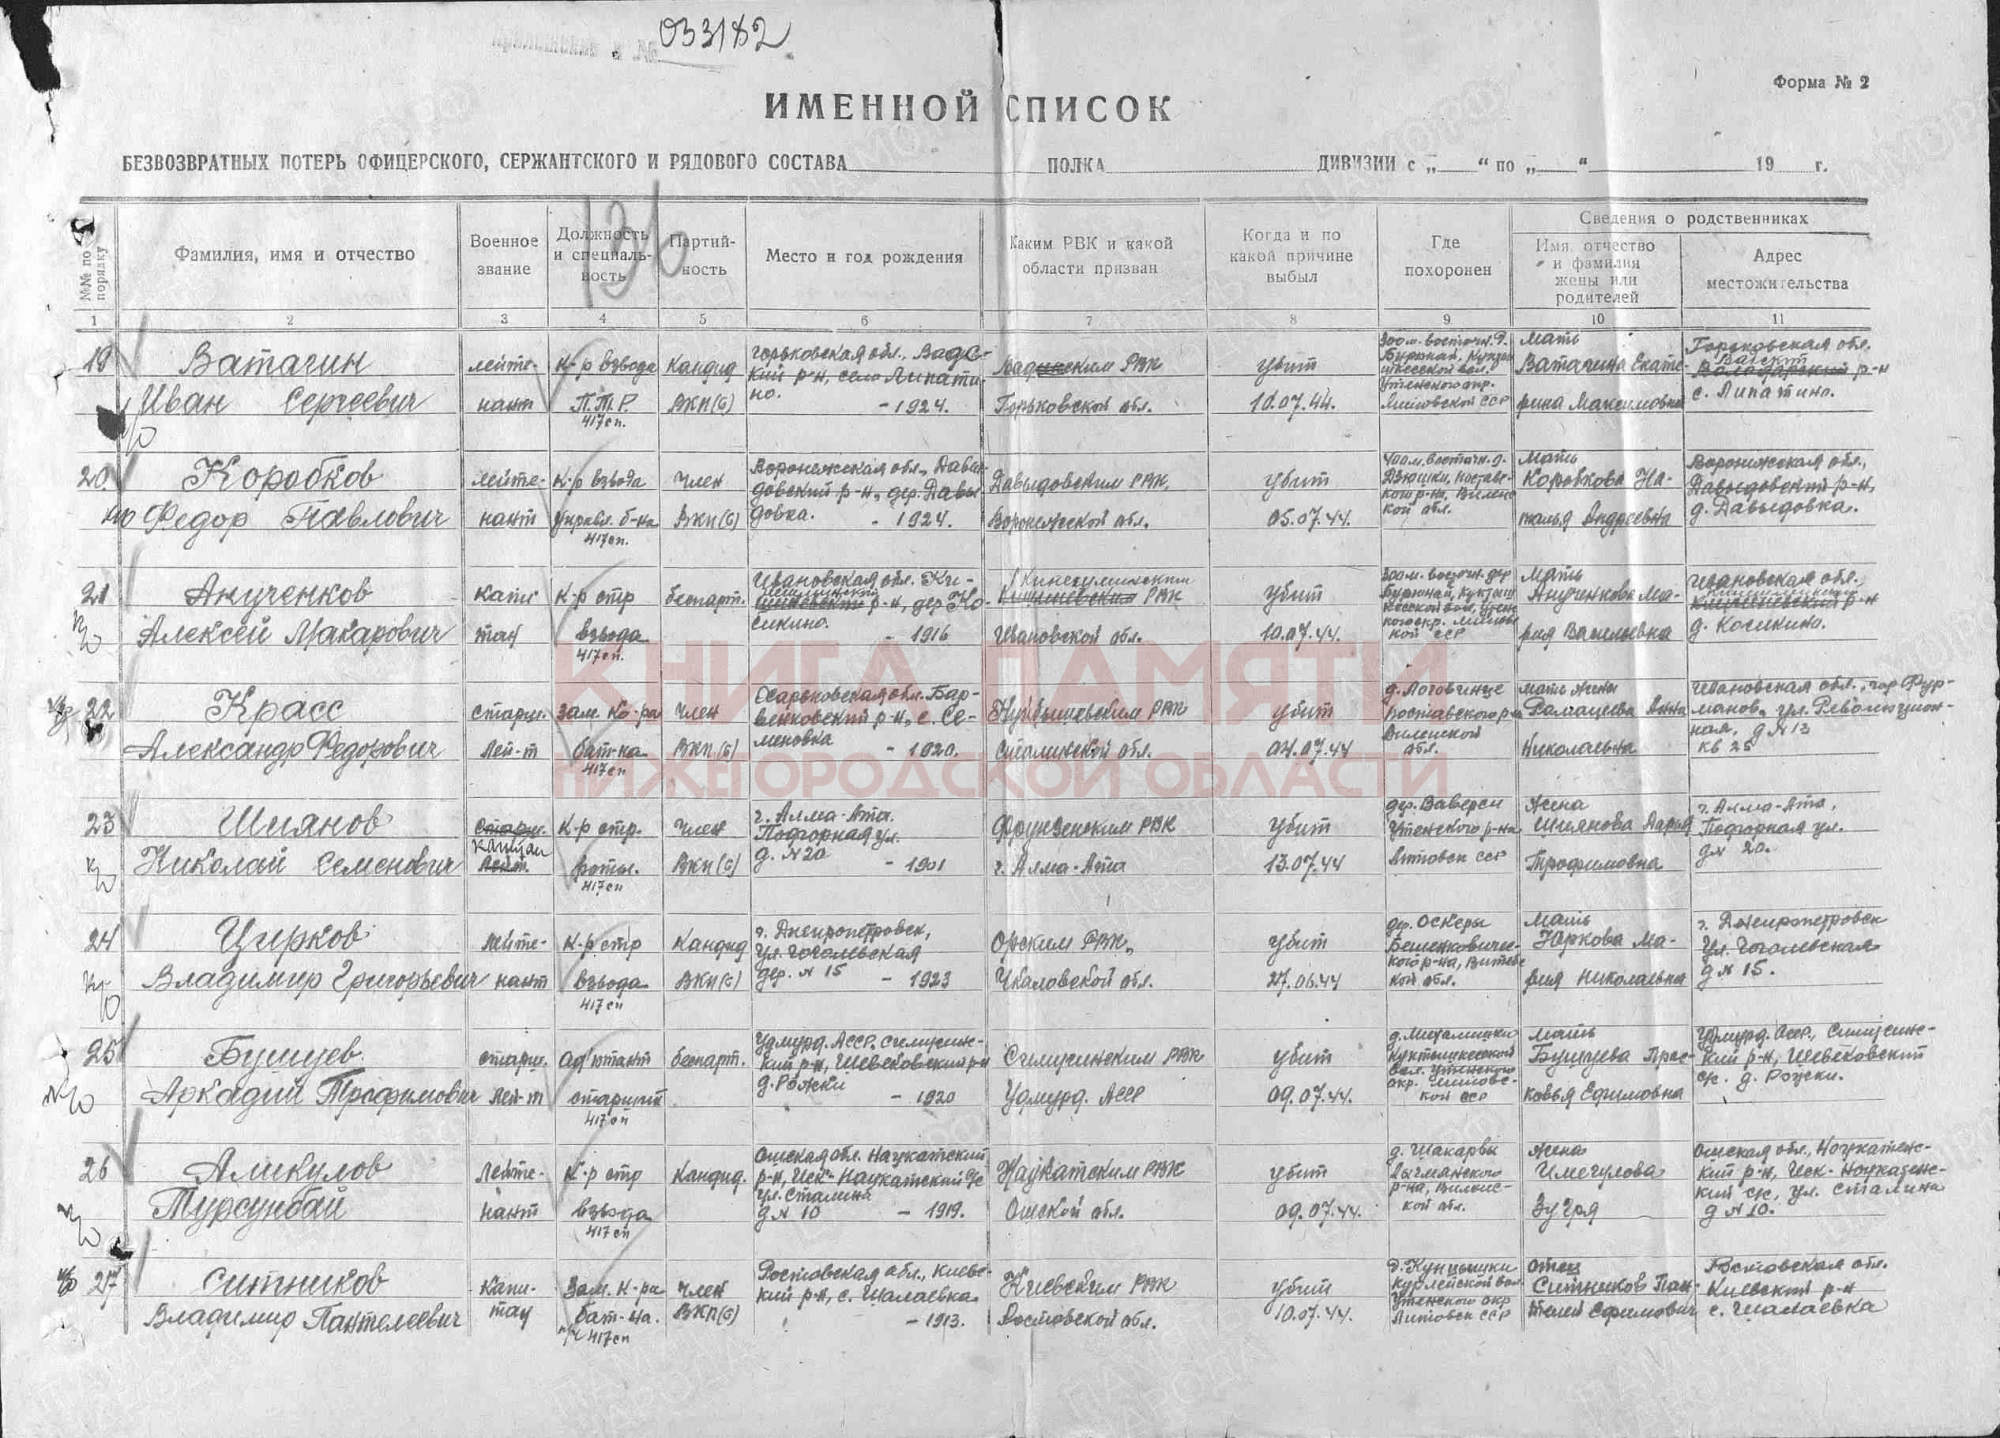 033182
Форма № 2
ИМЕННОЙ СПИСОК
БЕЗВОЗВРАТНЫХ ПОТЕРЬ ОФИЦЕРСКОГО, СЕРЖАНТСКОГО И РЯДОВОГО СОСТАВА ПОЛКА ДИВИЗИИ с „ “ по „ “ 19 г.
136
№№ по порядку
Фамилия, имя и отчество
Военное звание
Должность и специальность
Партий-ность
Место и год рождения
Каким РВК и какой области призван
Когда и по какой причине выбыл
Где похоронен
Сведения о родственниках
Имя, отчество и фамилия жены или родителей
Адрес местожительства
1 2 3 4 5 6 7 8 9 10 11
19 Ватагин Иван Сергеевич
лейте-нант
К-р взвода П.Т.Р. 417сп.
Кандид ВКП(б)
Горьковская обл., Вадс-кий р-н, село Липати-но. - 1924.
Вадским РВК Горьковской обл.
убит 10.07.44.
300 м. восточн. д. Бурюнай, Утенского окр. Литовской ССР
Мать Ватагина Екате-рина Максимовна
Горьковская обл. Вадский р-н с. Липатино.
20. Коробков Федор Павлович
лейте-нант
К-р взвода управл. б-на 417сп.
Член ВКП(б)
Воронежская обл., Давы-довский р-н, дер. Давы-довка. - 1924.
Давыдовским РВК, Воронежской обл.
убит 05.07.44.
400 м. восточн. д. Поставс-кого р-на, Вилейс-кой обл.
Мать Коробкова На-талья Андреевна
Воронежская обл., Давыдовский р-н, д. Давыдовка.
21 Анученков Алексей Макарович
капи-тан
К-р стр взвода 417сп.
беспарт.
Ивановская обл. р-н, дер. Ко-сикино. - 1916
РВК Ивановской обл.
убит 10.07.44.
300 м. восточн. дер Бурюнай,
Мать Анученкова Ма-рия Васильевна
Ивановская обл., р-н д. Косикино.
22 Красс Александр Федорович
старш. лей-т
Зам. Ко-ра бат-на 417сп
Член ВКП(б)
Харьковская обл. Бар-венковский р-н, с. Се-меновка - 1920.
Куйбышевским РВК Сталинской обл.
убит 04.07.44
Поставского р-на Вилейской обл.
мать жены Анна Николаевна
Ивановская обл., гор Фур-манов, ул. Революцион-ная, д №13 кв 25
23 Шиянов Николай Семенович
капитан
К-р стр. роты. 417сп
Член ВКП(б)
г. Алма-Ата. Подгорная ул. д. №20 - 1901
Фрунзенским РВК г. Алма-Ата
убит 13.07.44
дер. Ваверси Утенского р-на Литовск ССР
Жена Шиянова Дарья Трофимовна
г. Алма-Ата, Подгорная ул. д № 20.
24 Цирков Владимир Григорьевич
лейте-нант
К-р стр взвода 417сп
Кандид ВКП(б)
г. Днепропетровск, ул. Гоголевская № 15 - 1923
Орским РВК, Чкаловской обл.
убит 27.06.44
дер. Оскеры Бешенковичес-кого р-на, Витебс-кой обл.
Мать Юркова Ма-рия Николаевна
г. Днепропетровск ул. Гоголевская д № 15.
25 Бушуев Аркадий Трофимович
старш. лей-т
адъютант старший 417сп
беспарт.
Удмурд. АССР, кий р-н, д. Рожки - 1920
РВК Удмурд. АССР
убит 09.07.44.
Утенского окр. Литовс-кой ССР
мать Бушуева Прас-ковья Ефимовна
Удмурд. АССР, кий р-н, с/с. д. Рожки.
26 Аликулов Турсунбай
лейте-нант
К-р стр взвода 417сп
Кандид.
Ошская обл. Наукатский р-н, Иск-Наукатский с/с ул. Сталина д № 10 - 1919.
Наукатским РВК Ошской обл.
убит 09.07.44.
д. Шакарвы р-на, Вилейс-кой обл.
жена Имегулова
Ошская обл, Ноукатск-кий р-н, с/с, ул. Сталина д № 10.
27 Ситников Владимир Пантелеевич
Капи-тан
Зам. К-ра бат-на. п/ч 417сп
Член ВКП(б)
Ростовская обл., Киевс-кий р-н, с. Шалаевка - 1913.
Киевским РВК Ростовской обл.
убит 10.07.44.
Утенского окр Литовск ССР
отец Ситников Пан-телей Ефимович
Ростовская обл. Киевский р-н с. Шалаевка
КНИГА ПАМЯТИ
НИЖЕГОРОДСКОЙ ОБЛАСТИ